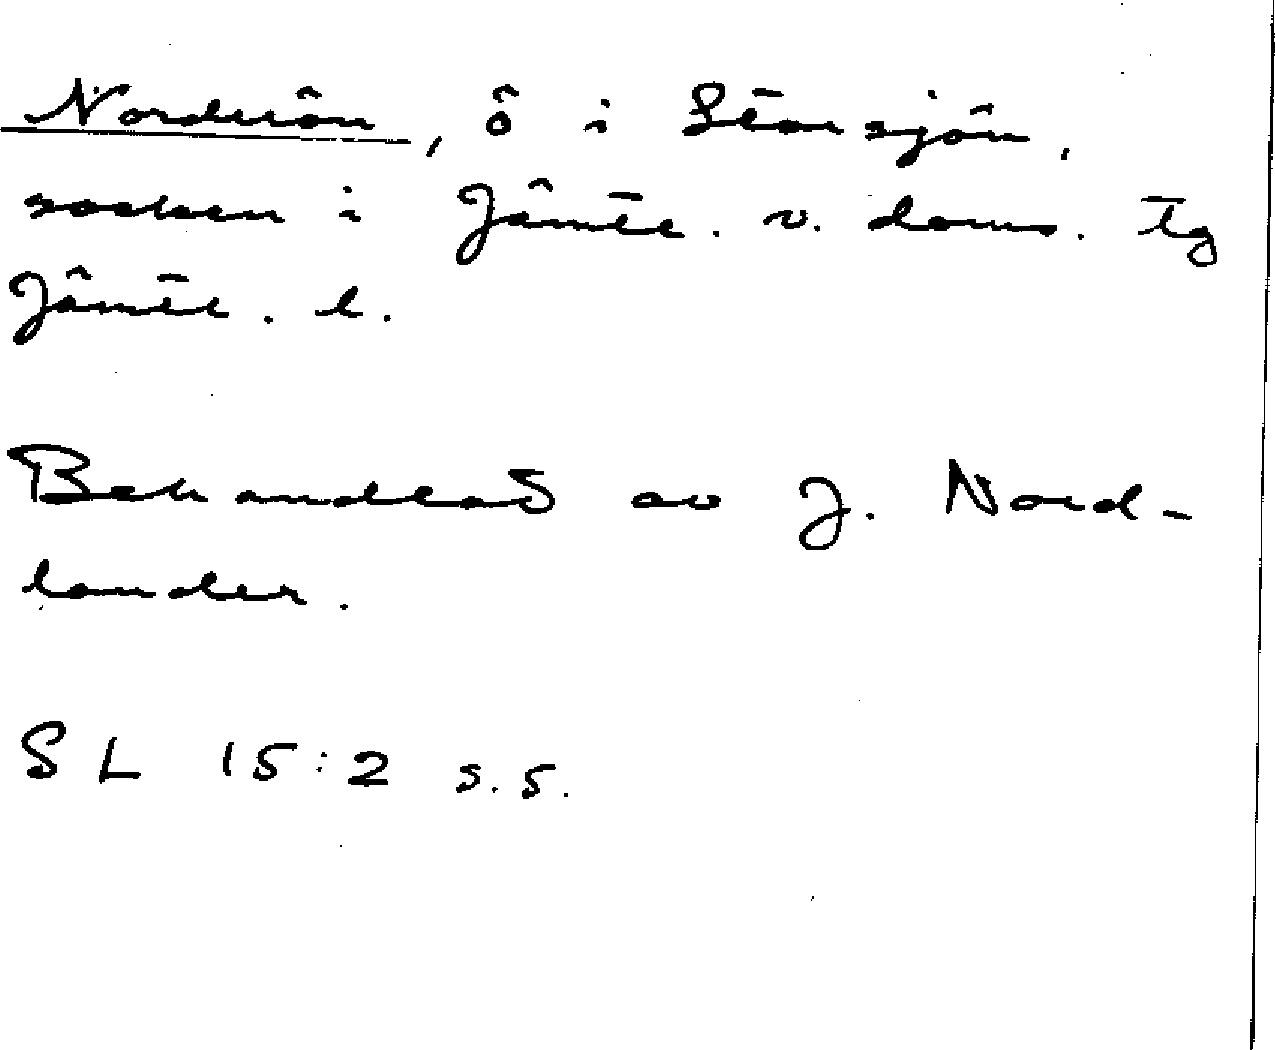 Norderön, ö i Storsjön,
socken i Jämtl. v. doms. tg
Jämtl. l.
Behandlas av J. Nord-
lander.
SL 15:2 s.5.